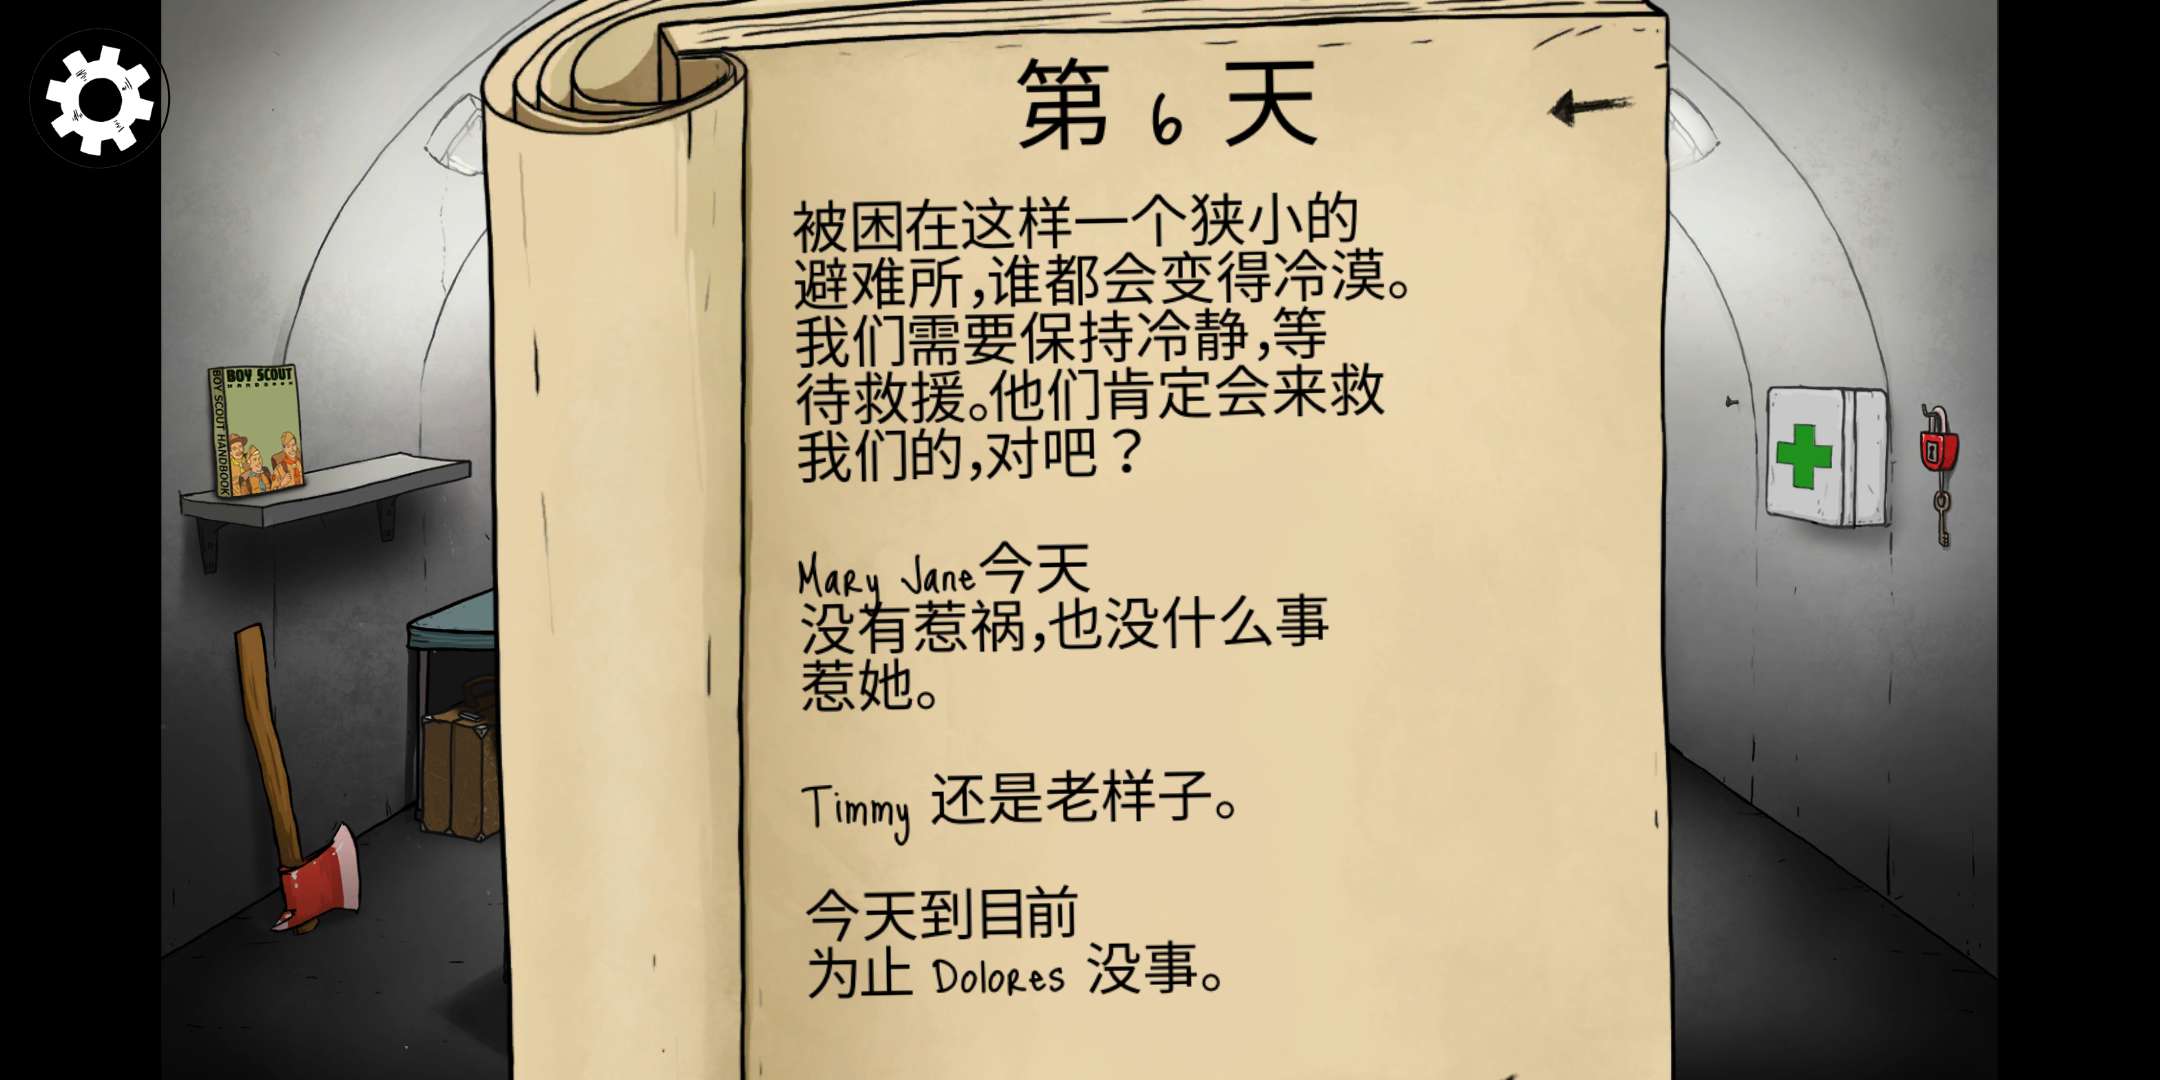 第 6 天
被困在这样一个狭小的
避难所,谁都会变得冷漠。
我们需要保持冷静,等
待救援。他们肯定会来救
我们的,对吧？
Mary Jane今天
没有惹祸,也没什么事
惹她。
Timmy 还是老样子。
今天到目前
为止 Dolores 没事。
BOY SCOUT
HANDBOOK
BOY SCOUT HANDBOOK